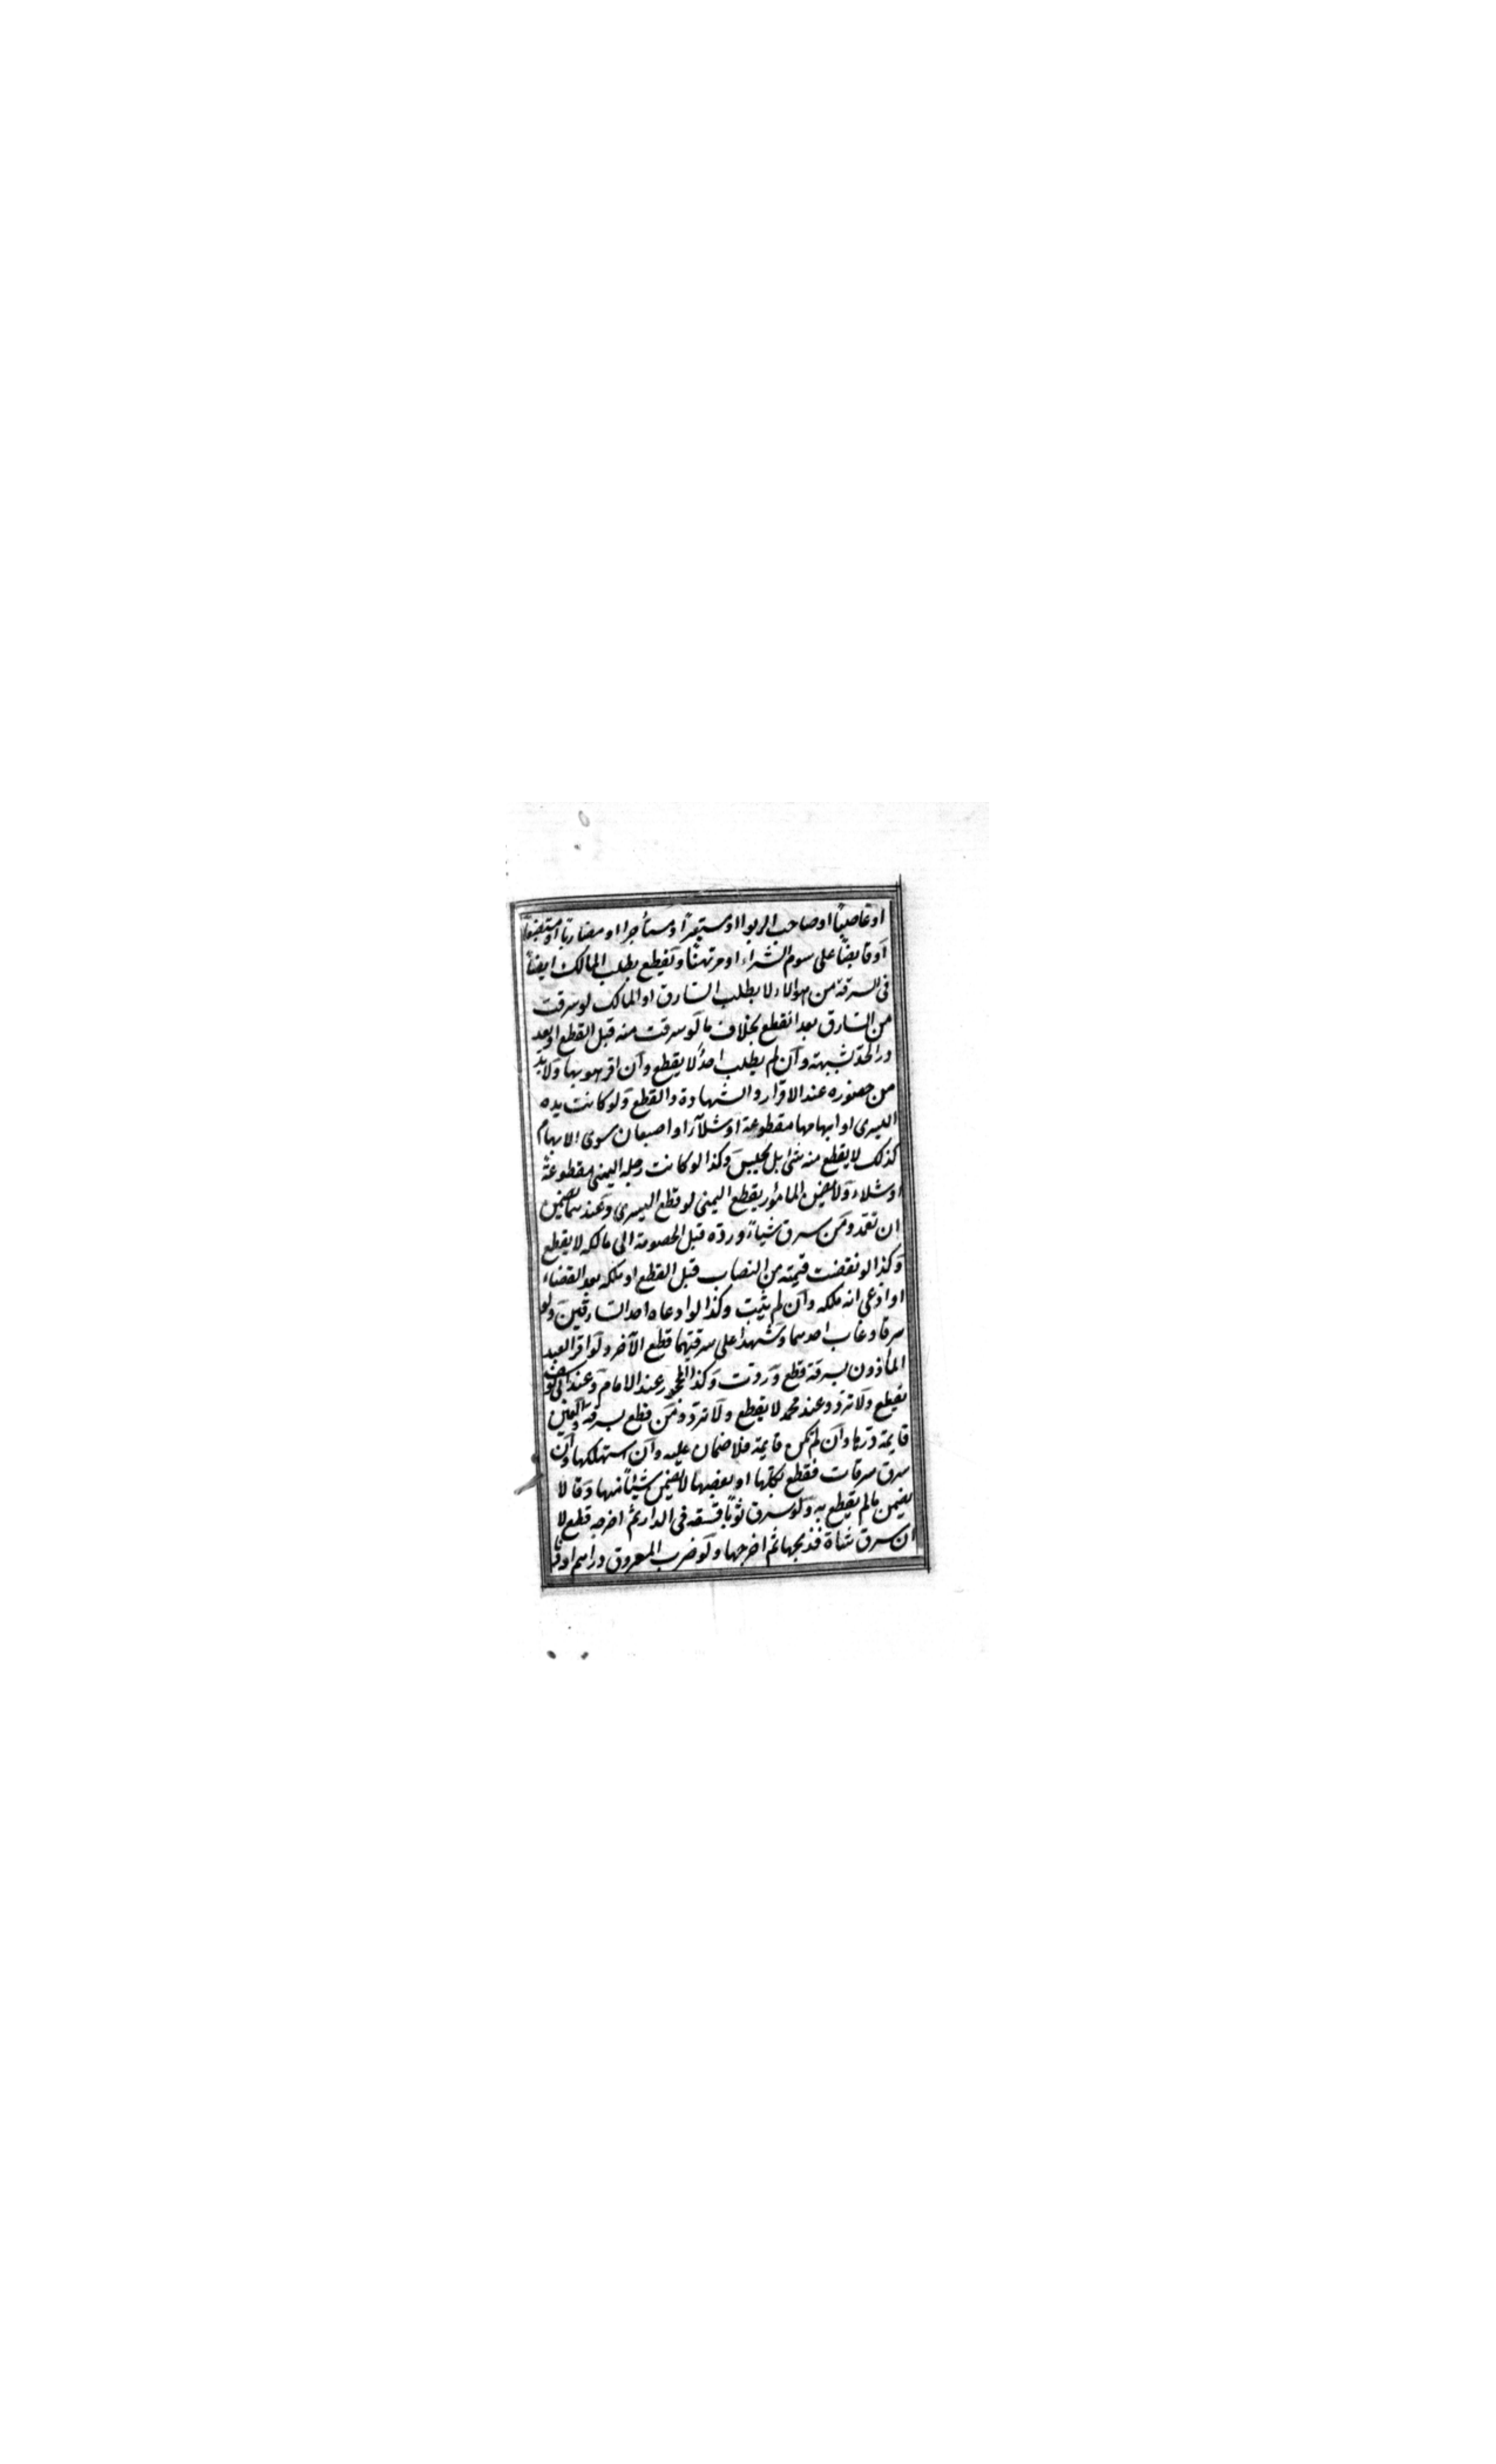 او غاصبًا او صاحب الربوا او مستعيرًا او مستأجرا او مضاربًا او مستبضعًا
او قابضًا على سوم الشراء او مرتهنًا ويقطع بطلب المالك ايضًا
فى السرقة من هؤالاء لا بطلب السارق او المالك لو سرقت
من السارق بعد القطع بخلاف ما لو سرقت منه قبل القطع او بعد
درء الحد بشبهة وان لم يطلب احدٌ لا يقطع وان اقر هو بها ولا بد
من حضوره عند الاقرار والشهادة والقطع ولو كانت يده
اليسرى او ابهامها مقطوعة او شلآء او اصبعان سوى الابهام
كذلك لا يقطع منه شئ بل يحبس وكذا لو كانت رجله اليمنى مقطوعة
او شلاء ولا يضمن المامور بقطع اليمنى لو قطع اليسرى وعندهما يضمن
ان تعمد ومن سرق شياءً ورده قبل الخصومة الى مالكه لا يقطع
وكذا لو نقضت قيمته من النصاب قبل القطع او ملكه بعد القضاء
او ادعى انه ملكه وان لم يثبت وكذا لو ادعاه احد السارقين ولو
سرقا وغاب احدهما وشهدا على سرقتهما قطع الآخر ولو اقر العبد
المأذون بسرقة قطع وردت وكذا المحجور عند الامام وعند ابى يوسف
يقطع ولا ترد وعند محمد لا يقطع ولا ترد ومن قطع بسرقة والعين
قايمة ردها وان لم تكن قايمة فلا ضمان عليه وان استهلكها وان
سرق سرقات فقطع بكلها او بعضها لا يضمن شيئًا منها وقالا
يضمن ما لم يقطع به ولو سرق ثوبًا فشقه فى الدار ثم اخرجه قطع لا
ان سرق شاة فذبحها ثم اخرجها ولو ضرب المسروق دراهم او